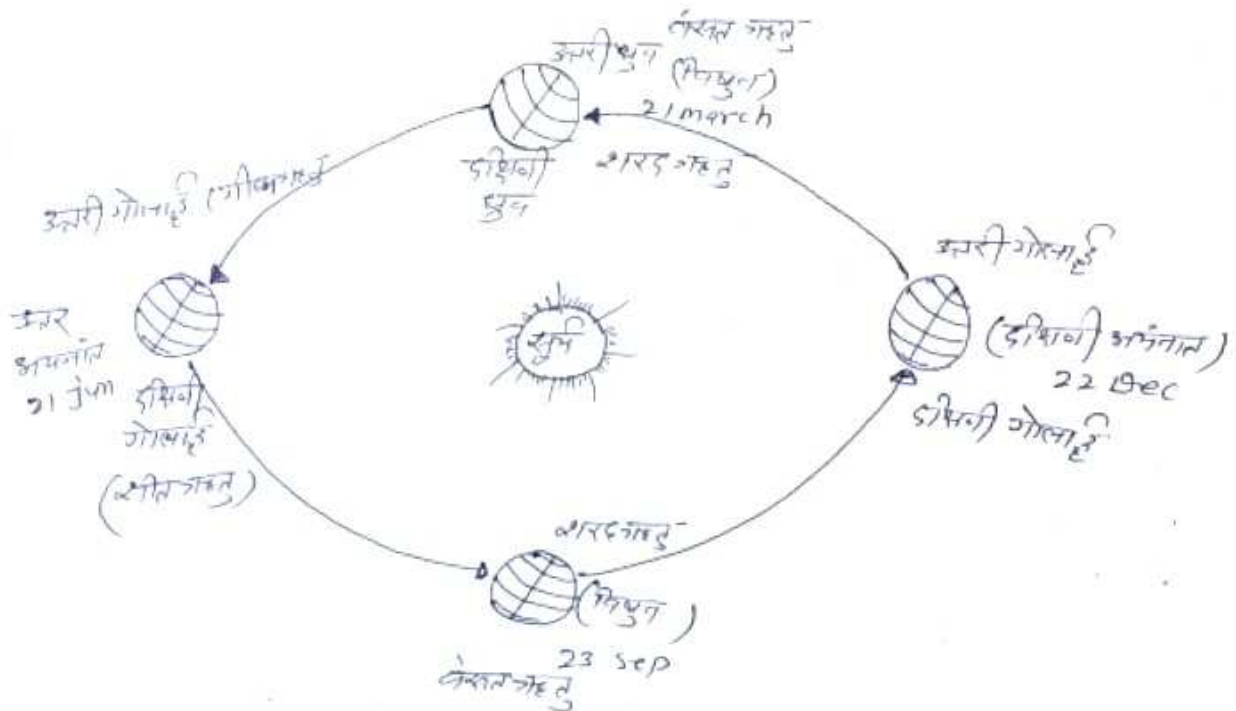 उत्तरी ध्रुव
वंसत ऋतु
(विषुव)
21 march
दक्षिणी
ध्रुव
शरद ऋतु
उत्तरी गोलार्द्ध (ग्रीष्मऋतु
उत्तर
अयनांत
21 जून
दक्षिणी
गोलार्द्ध
(शीत ऋतु)
सुर्य
उत्तरी गोलार्द्ध
(दक्षिणी अयंनात)
22 Dec
दक्षिणी गोलार्द्ध
शरद ऋतु
(विषुव)
23 Sep
वंसत ऋतु